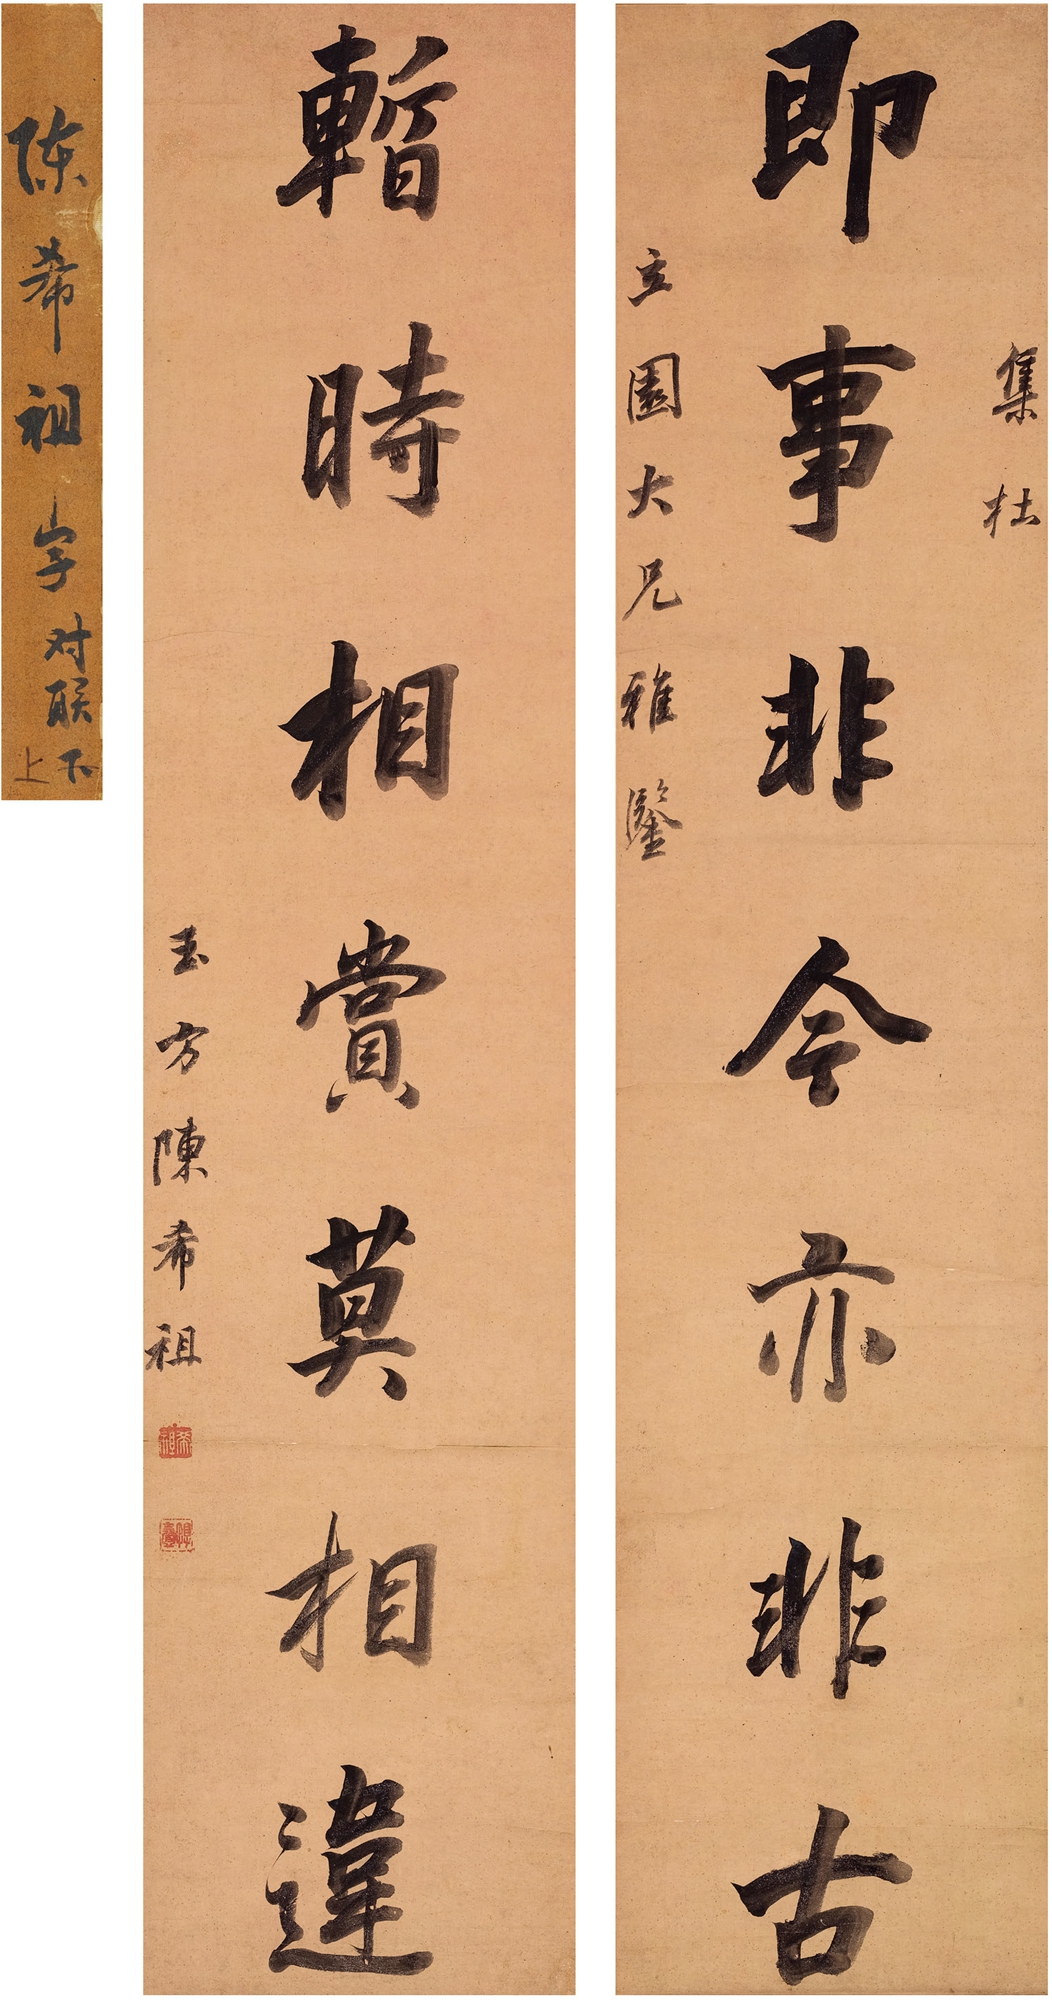 集杜
即事非今亦非古
立園大兄雅鑒
暫時相賞莫相違
玉方陳希祖
希祖
陈希祖字对联下
上